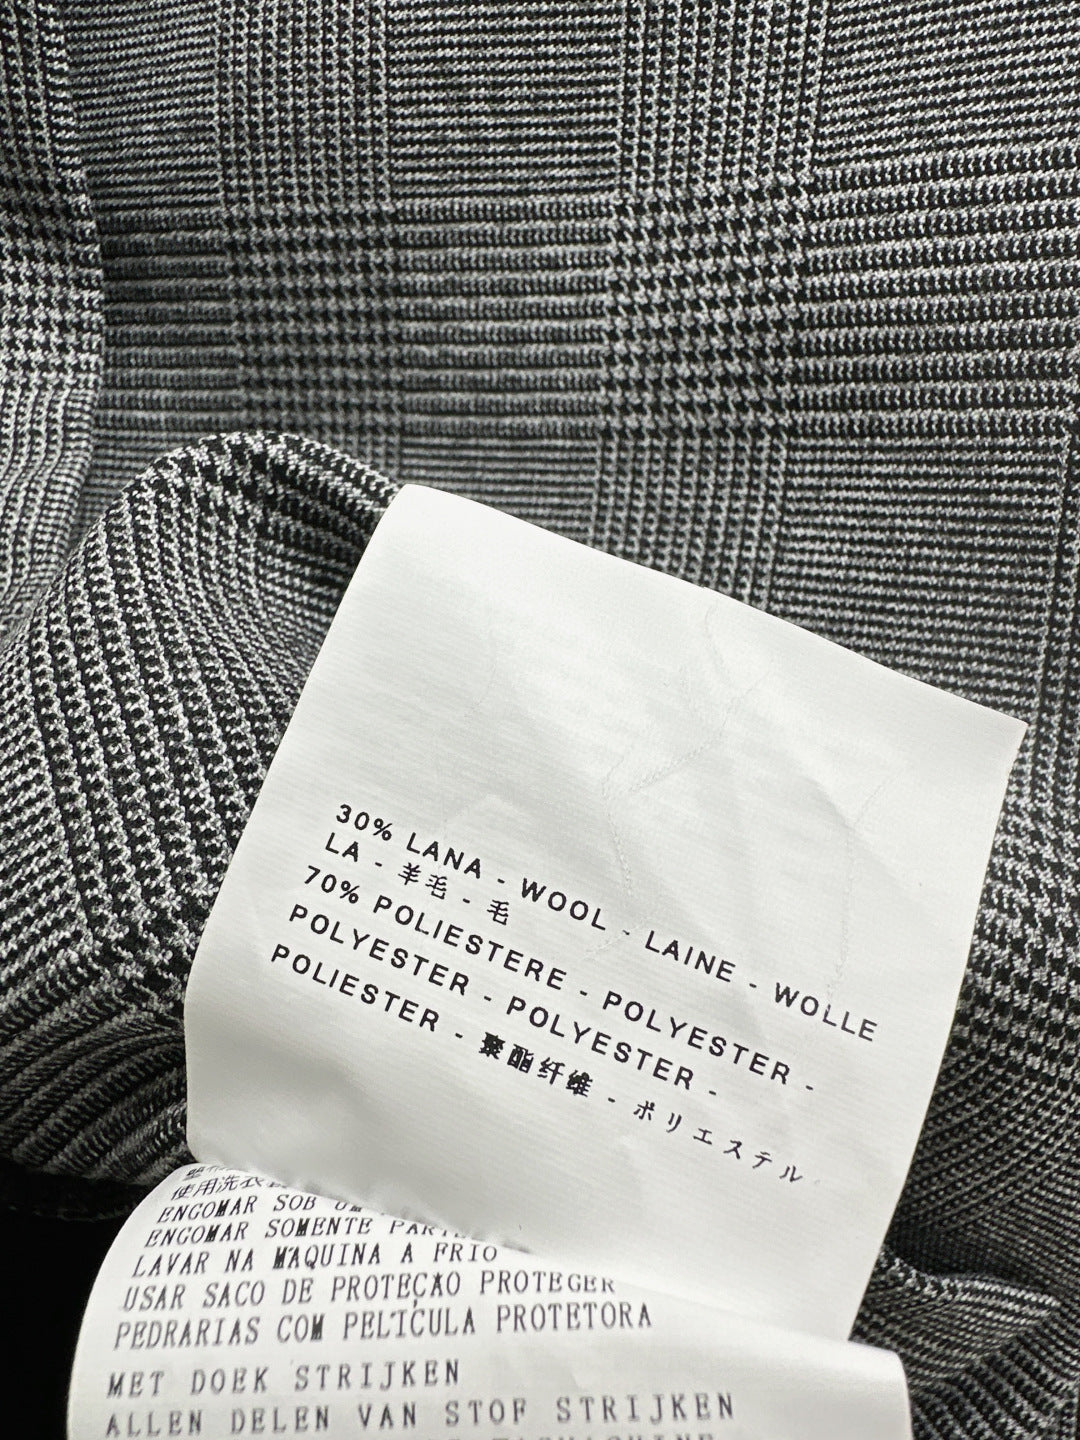 30% LANA - WOOL - LAINE - WOLLE
LA - 羊毛 - 毛
70% POLIESTERE - POLYESTER -
POLYESTER - POLYESTER -
POLIESTER - 聚酯纤维 - ポリエステル
使用洗衣
ENGOMAR SOB UM
ENGOMAR SOMENTE
LAVAR NA MAQUINA A FRIO
USAR SACO DE PROTEÇAO PROTEGER
PEDRARIAS COM PELICULA PROTETORA
MET DOEK STRIJKEN
ALLEN DELEN VAN STOF STRIJKEN